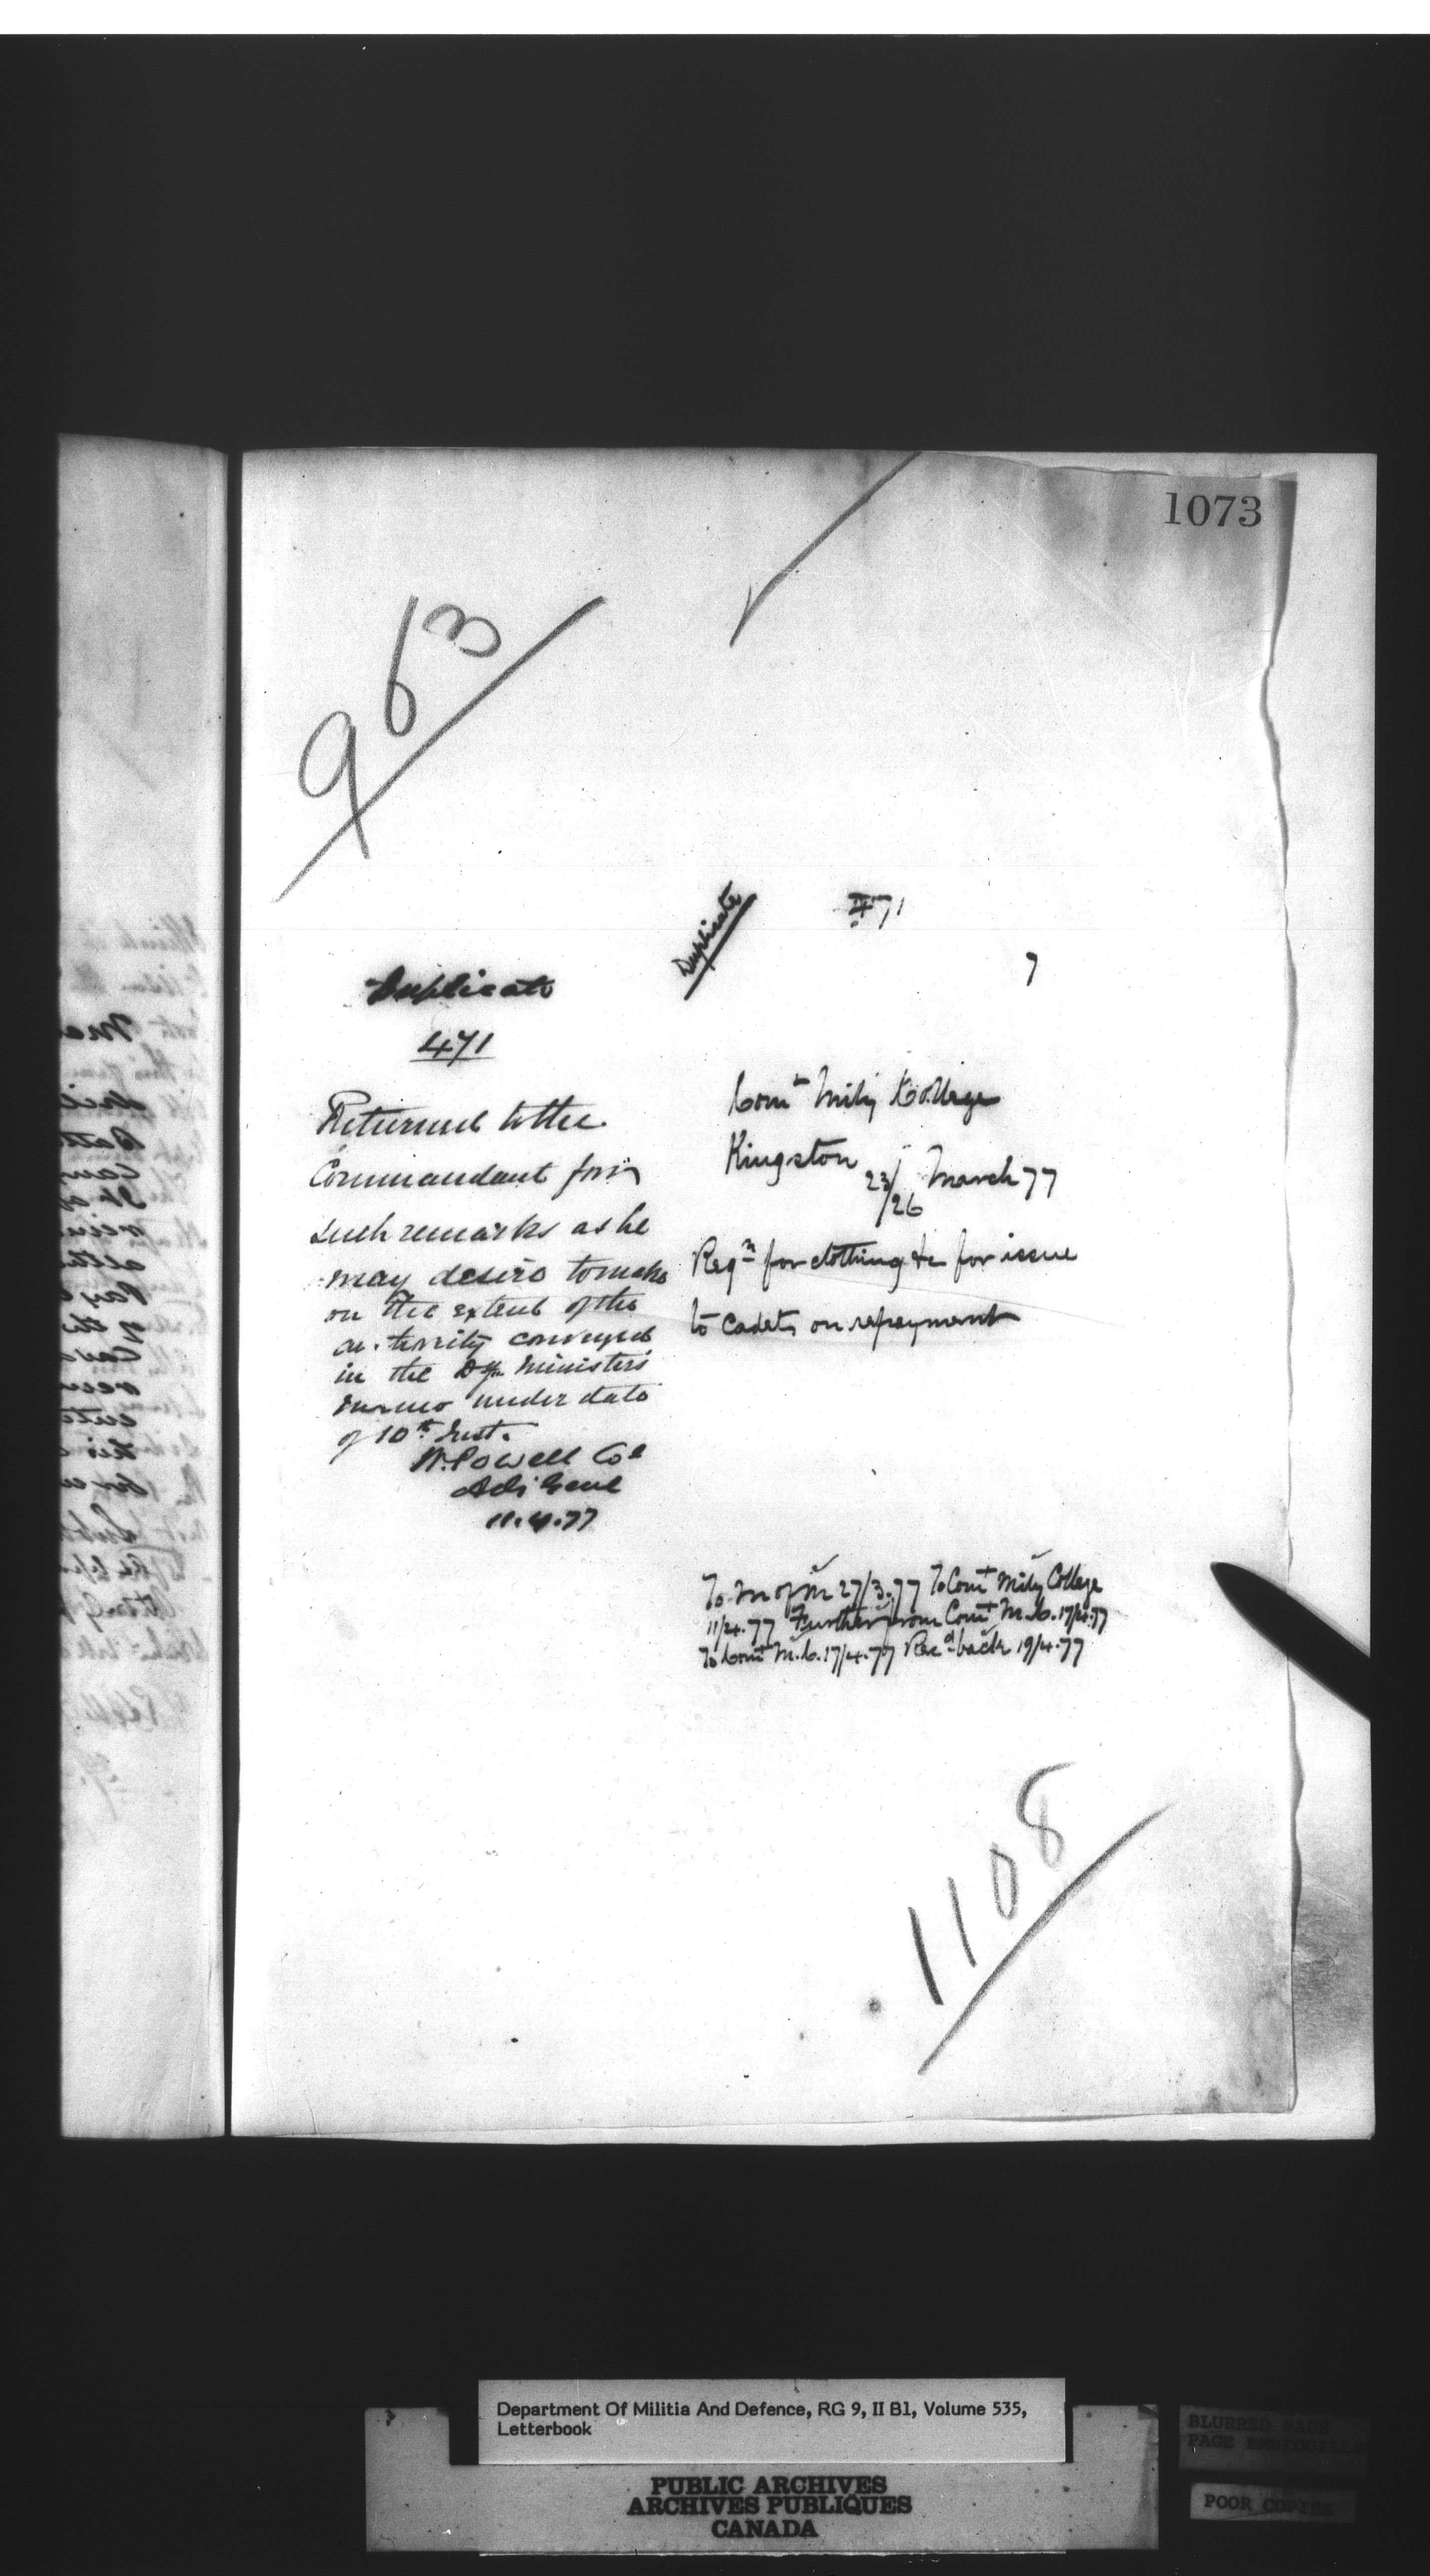 1073
963
Duplicate
471
Returned to the
Commandant for
such remarks as he
may desire to make
on the extent of the
authority conveyed
in the Dy. Ministers
memo under date
of 10th Inst.
W. Powell Col
Adj Genl
11.4.77
Duplicate
471
7
Comt Mily College
Kingston 23/26 March 77
Reqn for clothing &c for issue
to Cadets on repayment
To M of M 27/3.77 To Comt Mily College
11/4.77 Further from Comt M.C. 17/4.77
To Comt M.C. 17/4.77 Recd back 19/4.77
1108
Department Of Militia And Defence, RG 9, II B1, Volume 535,
Letterbook
PUBLIC ARCHIVES
ARCHIVES PUBLIQUES
CANADA
BLURRED PAGE
PAGE
POOR COPIES